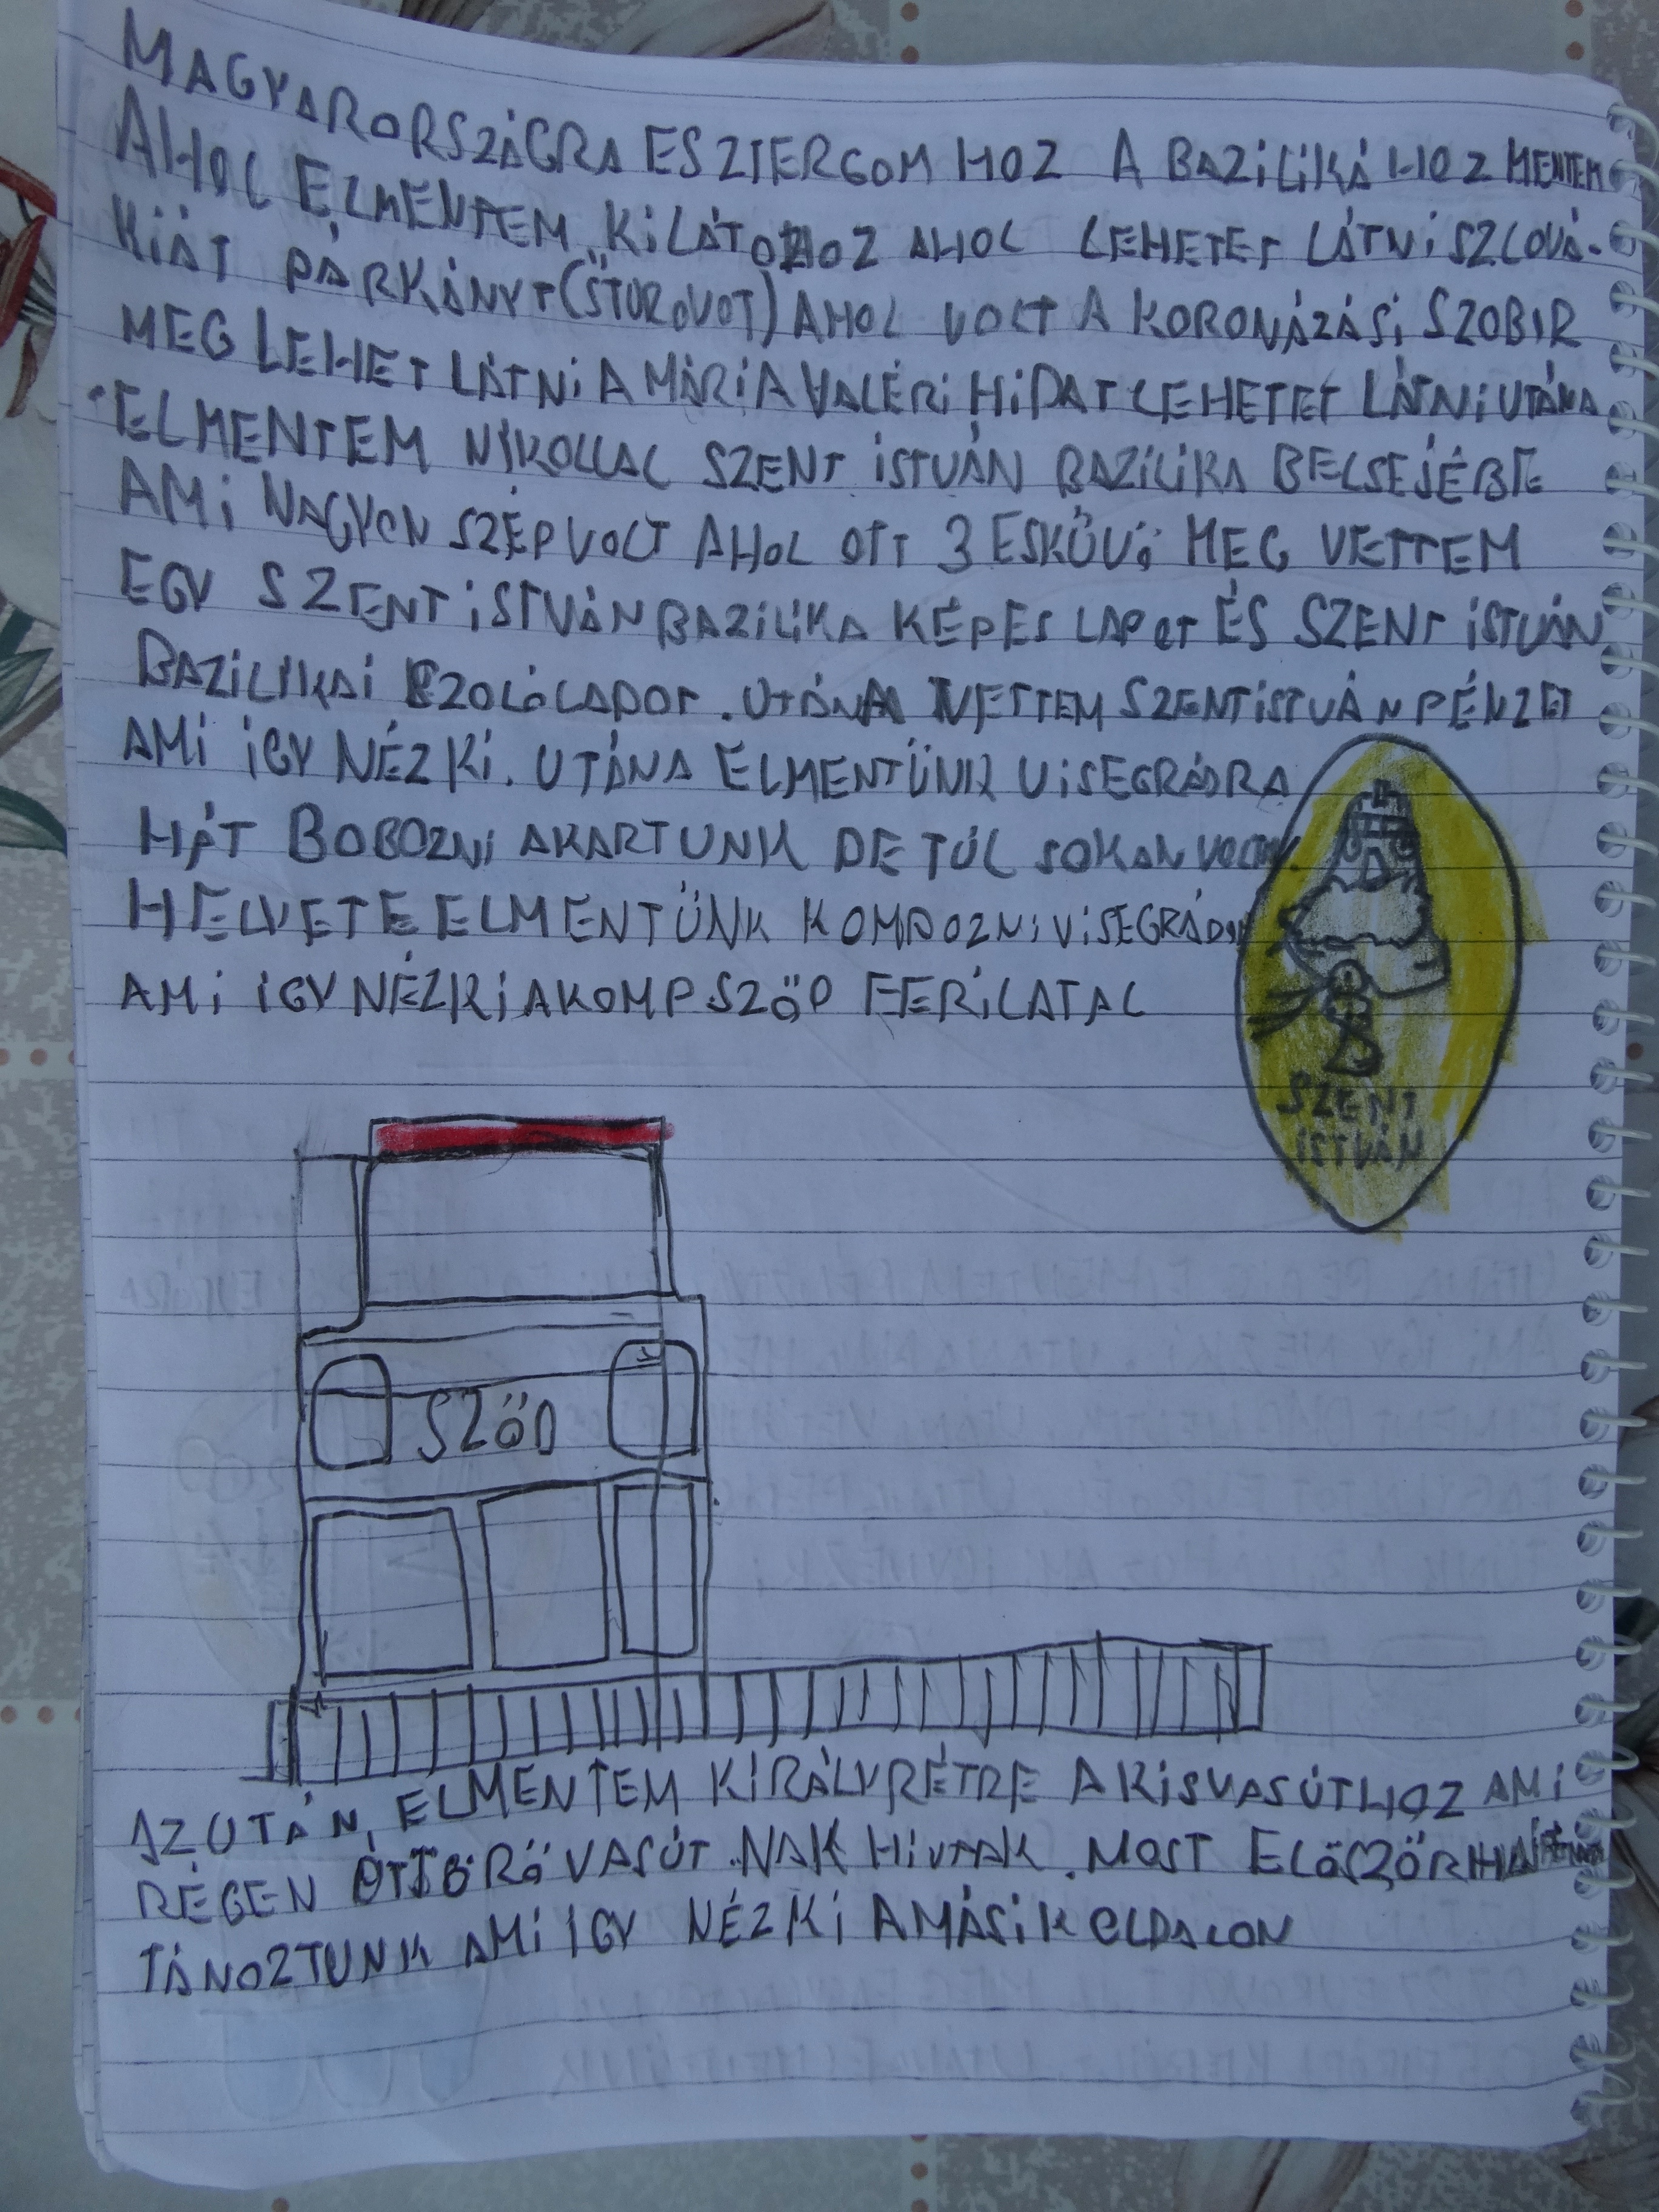 MAGYARORSZÁGRA ESZTERGOMHOZ A BAZILIKÁHOZ MENTEM
AHOL ELMENTEM KILÁTOHOZ AHOL LEHETET LÁTNI SZLOVÁ-
KIÁT PÁRKÁNYT (ŠTUROVOT) AHOL VOLT A KORONÁZÁSI SZOBIR
MEG LEHET LÁTNI A MÁRIA VALÉRI HIDAT LEHETET LÁTNI UTÁNA
ELMENTEM NIKOLLAL SZENT ISTVÁN BAZILIKA BELSEJÉBE
AMI NAGYON SZÉP VOLT AHOL OTT 3 ESKÜVŐ MEG VETTEM
EGY SZENT ISTVÁN BAZILIKA KÉPES LAPOT ÉS SZENT ISTVÁN
BAZILIKAI SZOLÓLAPOT. UTÁNA VETTEM SZENT ISTVÁN PÉNZET
AMI IGY NÉZ KI. UTÁNA ELMENTÜNK VISEGRÁDRA
HÁT BOBOZNI AKARTUNK DE TÚL SOKAN VOLTAK
HELYETE ELMENTÜNK KOMPOZNI VISEGRÁDON
AMI IGY NÉZ KI A KOMP SZŐD FERILATAL
SZENT
ISTVÁN
SZŐD
AZUTÁN, ELMENTEM KIRÁLYRÉTRE A KISVASÚTHOZ AMI
RÉGEN ÚTTÖRŐ VASÚT NAK HIVTAK. MOST ELŐSZÖR
TÁNOZTUNK AMI IGY NÉZ KI A MÁSIK OLDALON